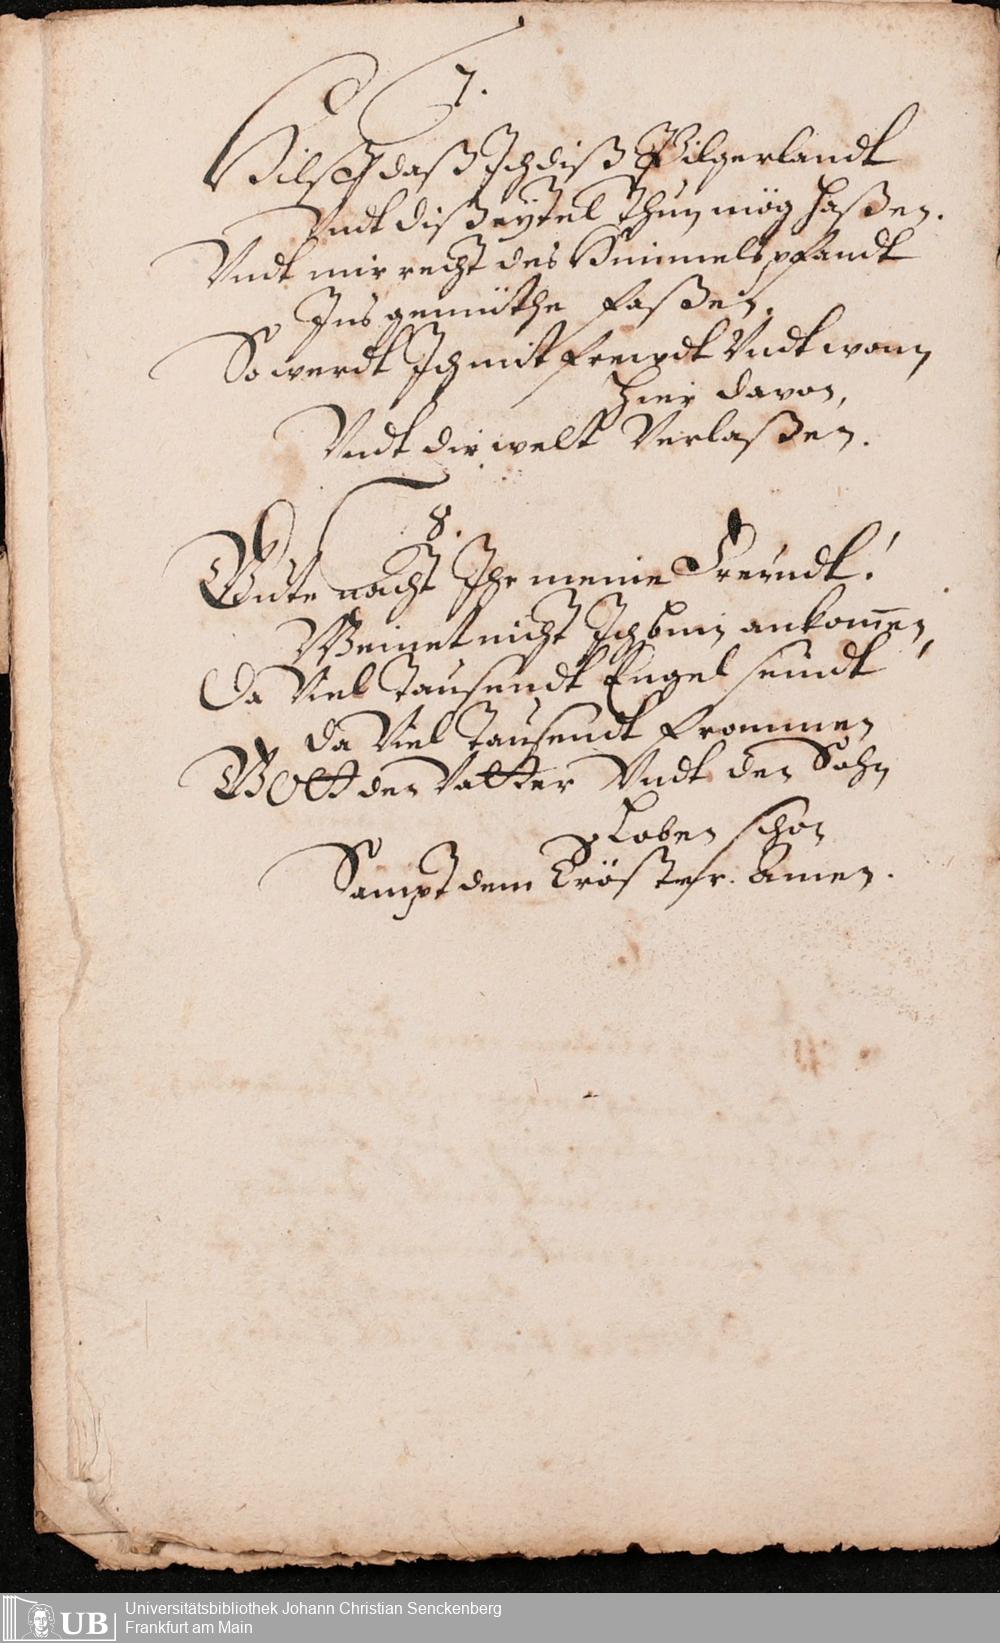 7.
Hilff daß Ich diß Pilgerlandt
Vndt diß eytel Thun mög haßen.
Vndt mir recht des Himmels pfandt
Ins gemüthe faßen.
So werdt Ich mit freudt Vndt wonn
hier davon,
Vndt die welt Verlaßen.
8.
Gute nacht Ihr meine Freundt!
Weinet nicht Ich bin ankom̄en,
Da Viel Tausendt Engel seindt
da Viel Tausendt frommen
GOtt den Vatter Vndt den Sohn
Loben schon
Sampt dem Tröster. Amen.
UB
Universitätsbibliothek Johann Christian Senckenberg
Frankfurt am Main